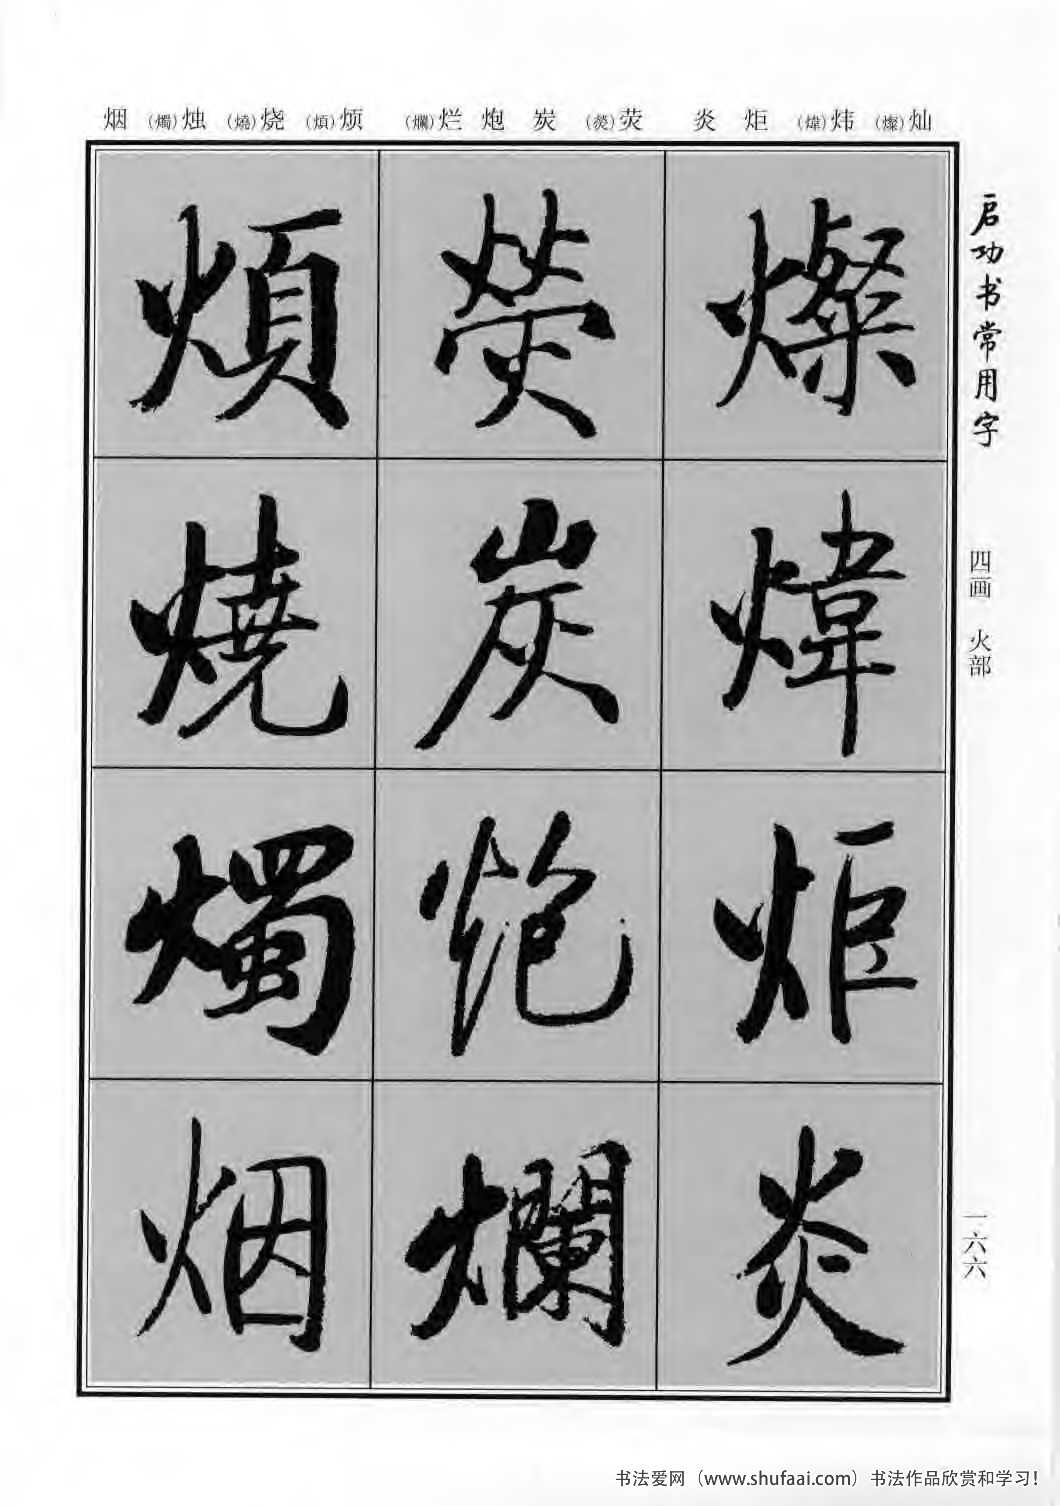 烟 (燭)烛 (燒)烧 (煩)烦 (爛)烂 炮 炭 (熒)荧 炎 炬 (煒)炜 (燦)灿
启功书常用字
四画 火部
一六六
燦
煒
炬
炎
熒
炭
炮
爛
煩
燒
燭
烟
书法爱网（www.shufaai.com）书法作品欣赏和学习！